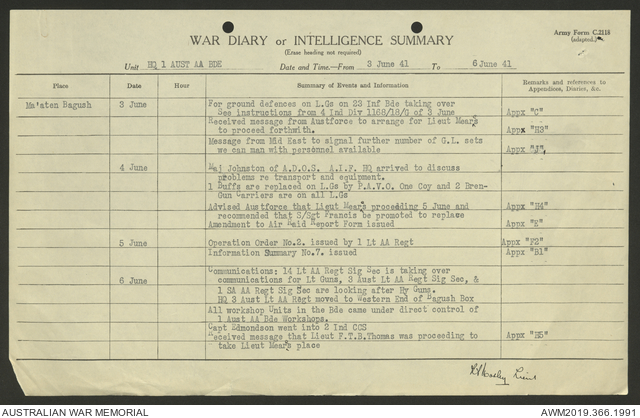 WAR DIARY or INTELLIGENCE SUMMARY
Army Form C.2118
(Erase heading not required)
(adapted.)
Unit HQ 1 AUST AA BDE Date and Time.—From 3 June 41 To 6 June 41
Place Date Hour Summary of Events and Information Remarks and references to Appendices, Diaries, &c.
Ma'aten Bagush 3 June For ground defences on L.Gs on 23 Inf Bde taking over
See instructions from 4 Ind Div 1168/18/G of 3 June Appx "C"
Received message from Austforce to arrange for Lieut Mears
to proceed forthwith. Appx "H3"
Message from Mid East to signal further number of G.L. sets
we can man with personnel available Appx "J"
4 June Maj Johnston of A.D.O.S. A.I.F. HQ arrived to discuss
problems re transport and equipment.
1 Buffs are replaced on L.Gs by P.A.V.O. One Coy and 2 Bren-
Gun Carriers are on all L.Gs
Advised Austforce that Lieut Mears proceeding 5 June and Appx "H4"
recommended that S/Sgt Francis be promoted to replace
Amendment to Air Raid Report Form issued Appx "E"
5 June Operation Order No.2. issued by 1 Lt AA Regt Appx "F2"
Information Summary No.7. issued Appx "B1"
6 June Communications: 14 Lt AA Regt Sig Sec is taking over
communications for Lt Guns, 3 Aust Lt AA Regt Sig Sec, &
1 SA AA Regt Sig Sec are looking after Hy Guns.
HQ 3 Aust Lt AA Regt moved to Western End of Bagush Box
All workshop Units in the Bde came under direct control of
1 Aust AA Bde Workshops.
Capt Edmondson went into 2 Ind CCS
Received message that Lieut F.T.B.Thomas was proceeding to Appx "H5"
take Lieut Mear's place
Lieut
AUSTRALIAN WAR MEMORIAL
AWM2019.366.1991